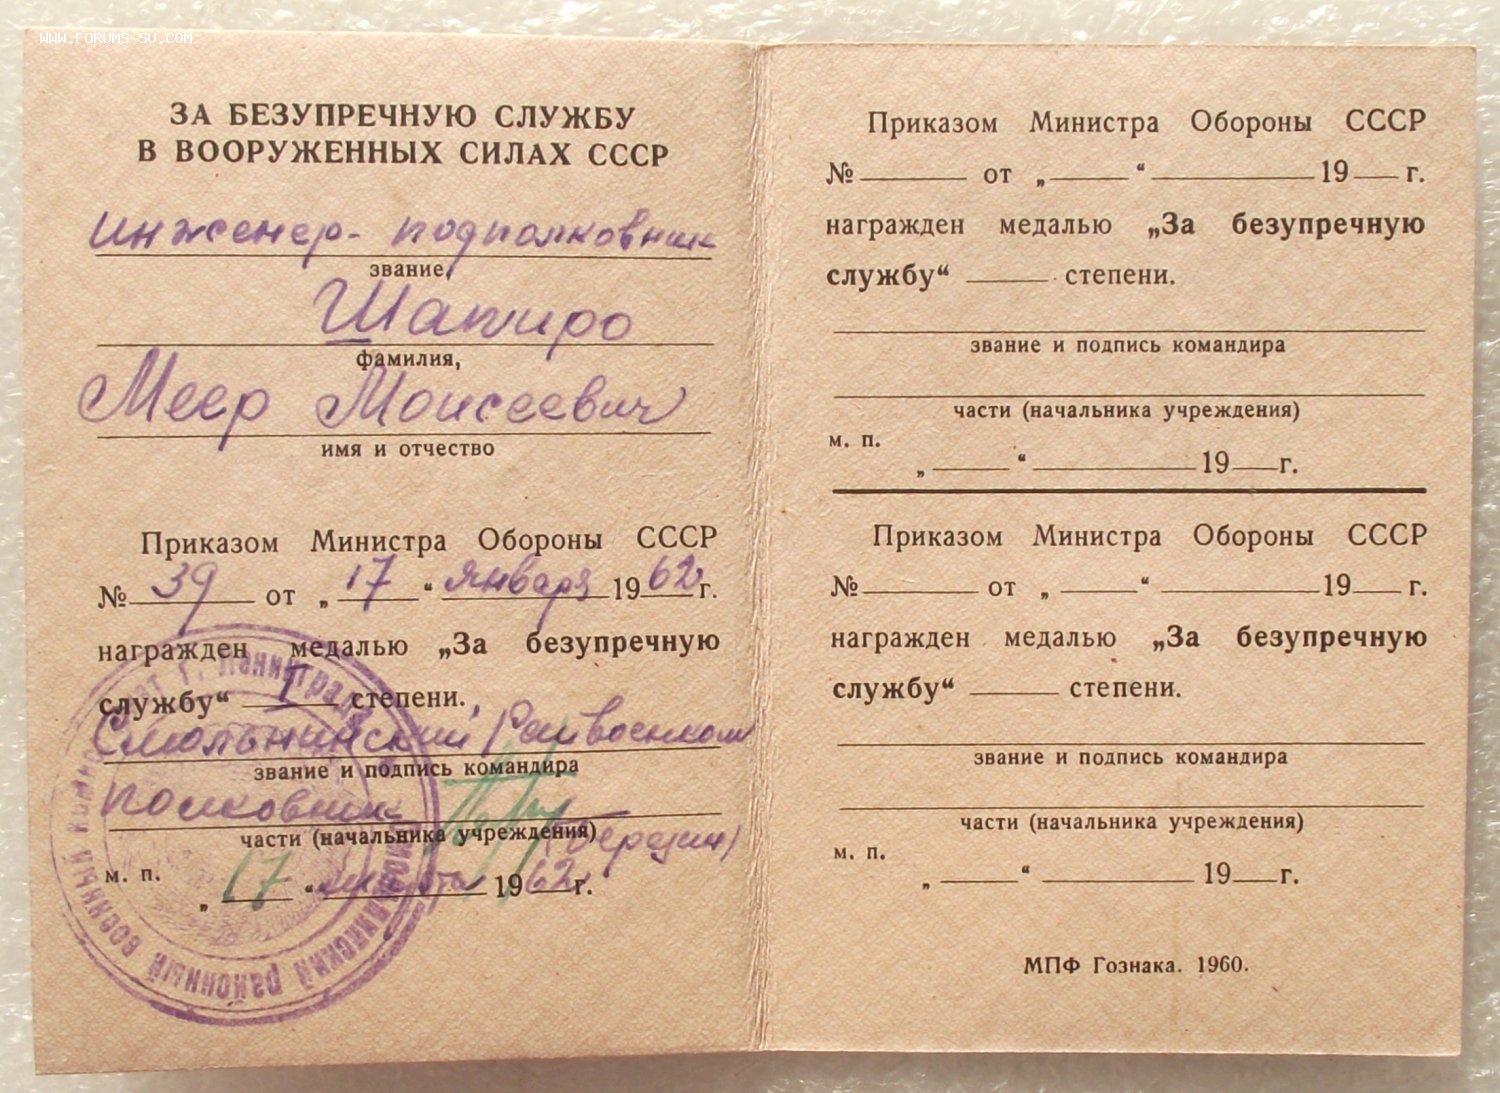 www.forums-su.com
ЗА БЕЗУПРЕЧНУЮ СЛУЖБУ
В ВООРУЖЕННЫХ СИЛАХ СССР
инженер-подполковник
звание,
Шапиро
фамилия,
Меер Моисеевич
имя и отчество
Приказом Министра Обороны СССР
№ 39 от „17“ января 1962 г.
награжден медалью „За безупречную
службу“ I степени.
Смольнинский Райвоенком
звание и подпись командира
полковник (Березин)
части (начальника учреждения)
м. п.
„17“ марта 1962 г.
Приказом Министра Обороны СССР
№ от „ “ 19 г.
награжден медалью „За безупречную
службу“ степени.
звание и подпись командира
части (начальника учреждения)
м. п.
„ “ 19 г.
Приказом Министра Обороны СССР
№ от „ “ 19 г.
награжден медалью „За безупречную
службу“ степени.
звание и подпись командира
части (начальника учреждения)
м. п.
„ “ 19 г.
МПФ Гознака. 1960.